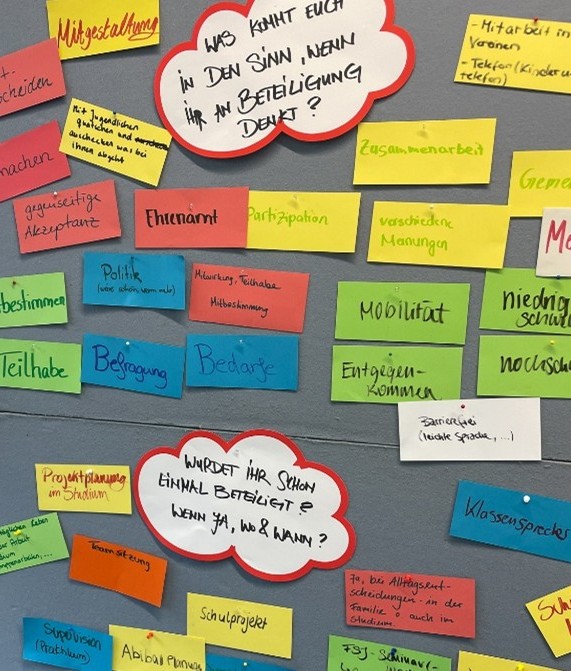 Mitgestaltung
WAS KOMMT EUCH
IN DEN SINN, WENN
IHR AN BETEILIGUNG
DENKT?
- Mitarbeit in
Vereinen
- Telefon (Kinder
telefon)
scheiden
Mit Jugendlichen
quatschen und
auschecken was bei
ihnen abgeht
machen
Zusammenarbeit
Geme
gegenseitige
Akzeptanz
Ehrenamt
Partizipation
verschiedene
Meinungen
Me
bestimmen
Politik
(wäre schön, wenn mehr)
Mitwirkung, Teilhabe
Mitbestimmung
Mobilität
niedrig
schw
Teilhabe
Befragung
Bedarfe
Entgegen-
kommen
hochsch
Barrierefrei
(leichte Sprache, ...)
WURDET IHR SCHON
EINMAL BETEILIGT?
WENN JA, WO & WANN?
Projektplanung
im Studium
Klassensprecher
täglichen Leben
Arbeit
Teamsitzung
Ja, bei Alltagsent-
scheidungen in der
Familie o auch im
Studium
Schulprojekt
Supervision
(Praktikum)
Abiball Planung
FSJ-Seminar-